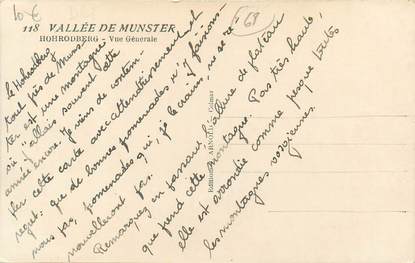 10 €
68
118 VALLÉE DE MUNSTER
HOHRODBERG - Vue Générale
Le Hohrodberg
tout près de Muns-
ter, est une montagne
où j'allais souvent cette
année encore. Je viens de contem-
pler cette carte avec attendrissement et
regret: que de bonnes promenades n'y faisions-
nous pas, promenades qui, je le crains, ne se re-
nouvelleront pas.
Remarquez en passant l'allure de plateau
que prend cette montagne. Pas très haute,
elle est arrondie comme presque toutes
les montagnes vosgiennes.
Editions ARNOLD, Colmar